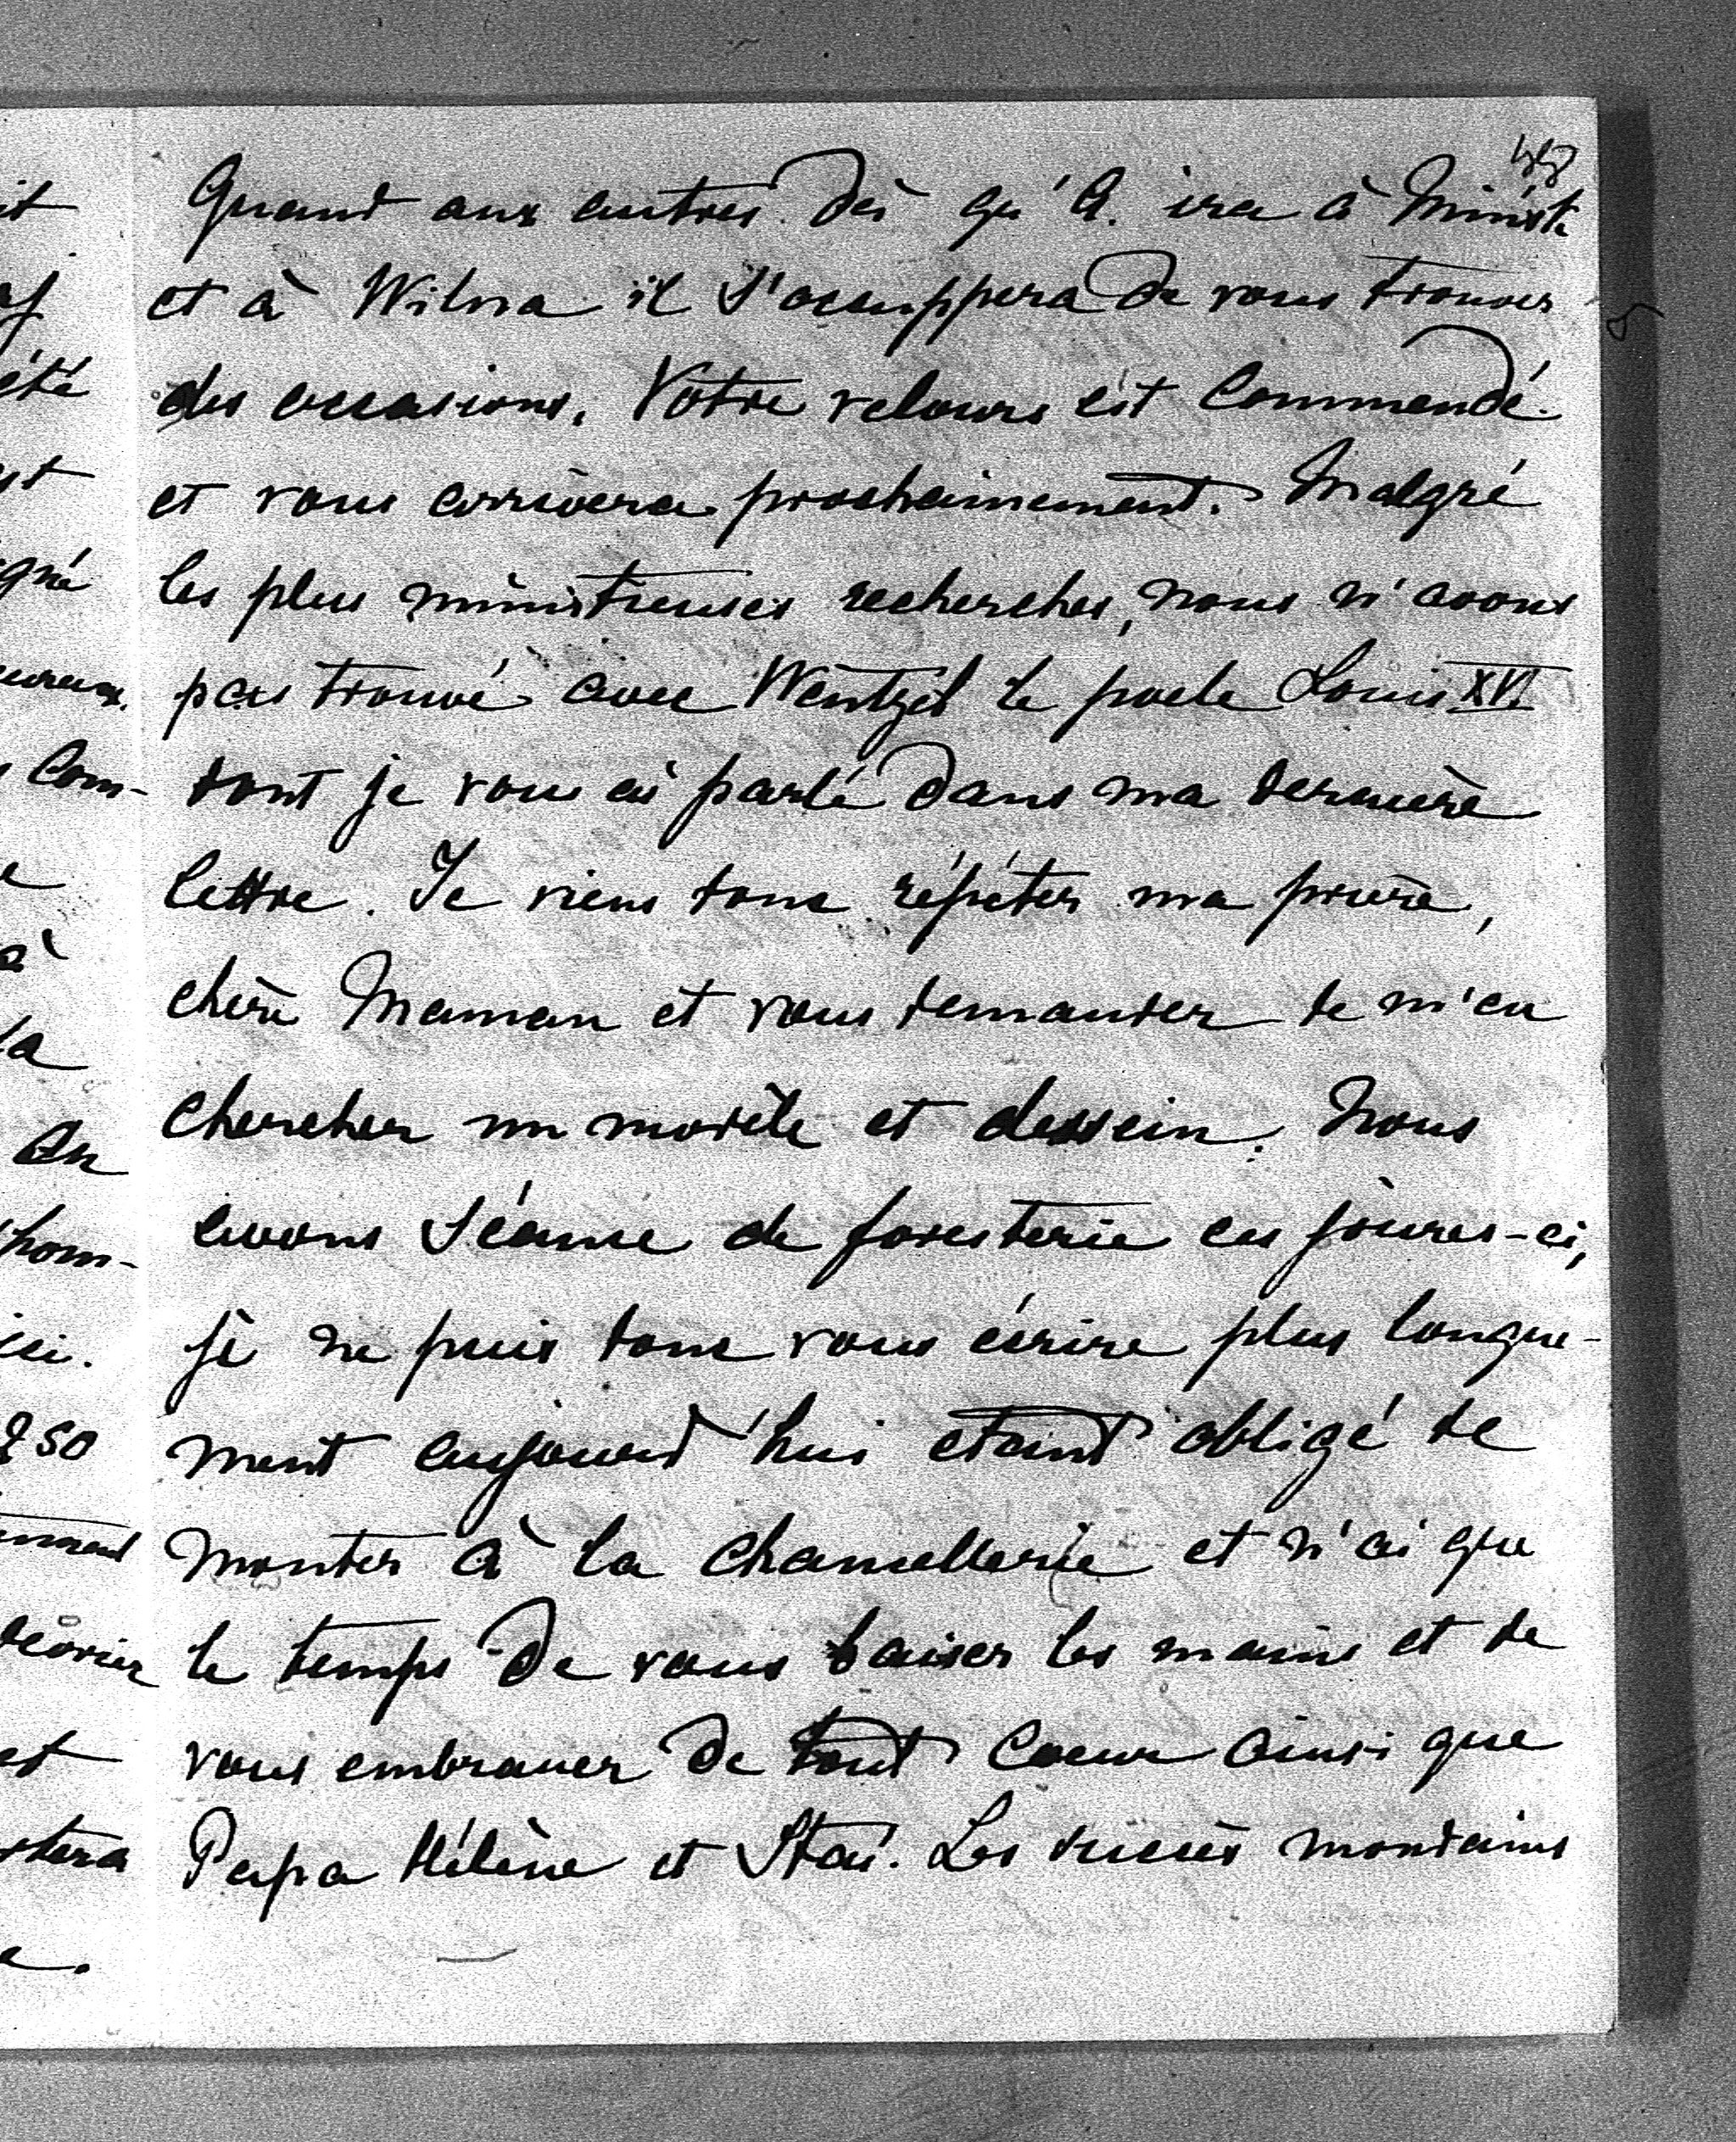 Quand aux autres dès qu'A. ira à Minsk
et à Wilna il s'occuppera de vous trouver
des occasions. Votre velours est commandé
et vous arrivera prochainement. Malgré
les plus ministieuses recherches, nous n'avons
pas trouvé avec Wentzel le poele Louis XVI
dont je vous ai parlé dans ma dernière
lettre. Je viens donc répéter ma prière,
chère Maman et vous demander de m'en
chercher un modèle et dessein. Nous
avons séance de foresterie ces jours-ci,
je ne puis donc vous écrire plus longue-
ment aujourd'hui etant obligé de
monter à la chancellerie et n'ai que
le temps de vous baiser les mains et de
vous embrasser de tout coeur ainsi que
Papa Hélène et Staś. Les succès mondains